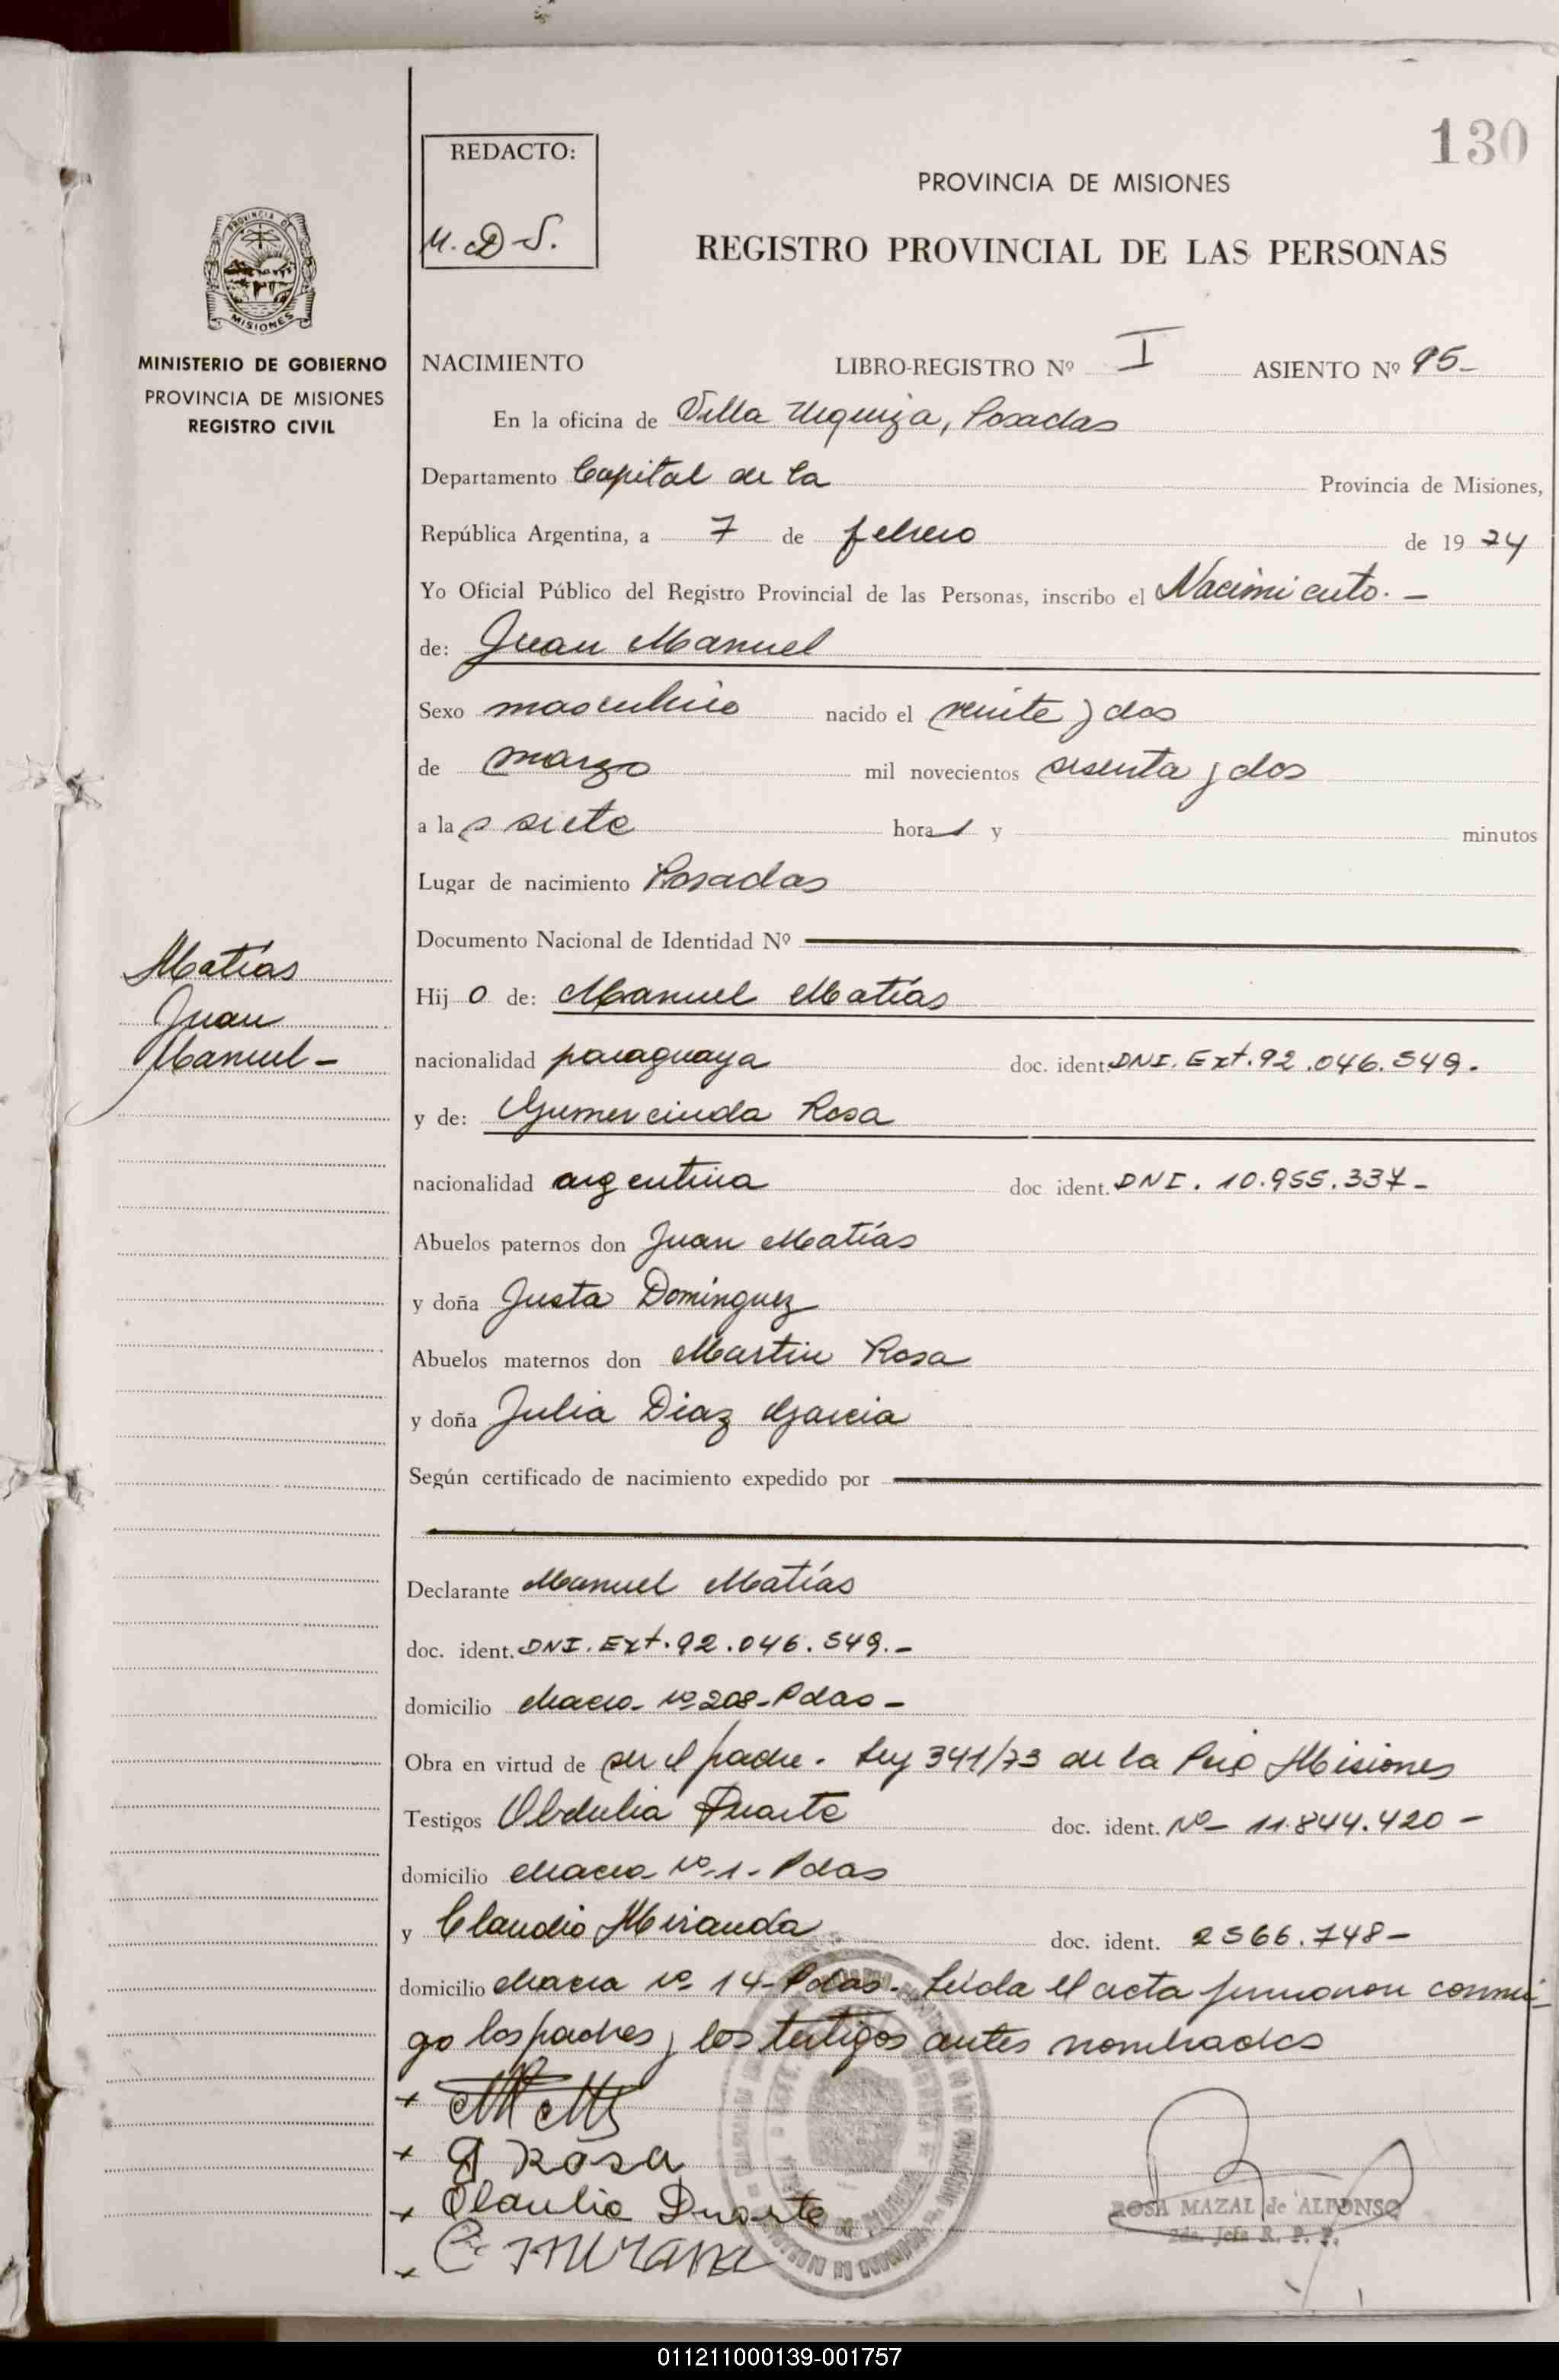 130
REDACTO:
M. D S.
PROVINCIA DE MISIONES
REGISTRO PROVINCIAL DE LAS PERSONAS
PROVINCIA DE
MISIONES
MINISTERIO DE GOBIERNO
PROVINCIA DE MISIONES
REGISTRO CIVIL
NACIMIENTO LIBRO-REGISTRO Nº I ASIENTO Nº 95-
En la oficina de Villa Urquiza, Posadas
Departamento Capital de la Provincia de Misiones,
República Argentina, a 7 de febrero de 19 74
Yo Oficial Público del Registro Provincial de las Personas, inscribo el Nacimiento. -
de: Juan Manuel
Sexo masculino nacido el veinte y dos
de marzo mil novecientos sesenta y dos
a las siete horas y minutos
Lugar de nacimiento Posadas
Documento Nacional de Identidad Nº
Matías
Juan
Manuel -
Hijo de: Manuel Matías
nacionalidad paraguaya doc. ident. DNI. Ext. 92.046.549.
y de: Gumercinda Rosa
nacionalidad argentina doc ident. DNI. 10.955.337-
Abuelos paternos don Juan Matías
y doña Justa Dominguez
Abuelos maternos don Martin Rosa
y doña Julia Diaz Garcia
Según certificado de nacimiento expedido por
Declarante Manuel Matías
doc. ident. DNI. Ext. 92.046.549.-
domicilio chacra nº 208-Pdas-
Obra en virtud de ser el padre. Ley 341/73 de la Misiones
Testigos Obdulia Duarte doc. ident. Nº- 11.844.420 -
domicilio chacra nº 1- Pdas
y Claudio Miranda doc. ident. 2566.748-
domicilio chacra nº 14-Pdas. Leida el acta firmaron conmi-
go los padres y los testigos antes nombrados
+
+ G Rosa
+ Duarte
+ C.
ROSA MAZAL de ALFONSO
2da. Jefa R. P. P.
011211000139-001757